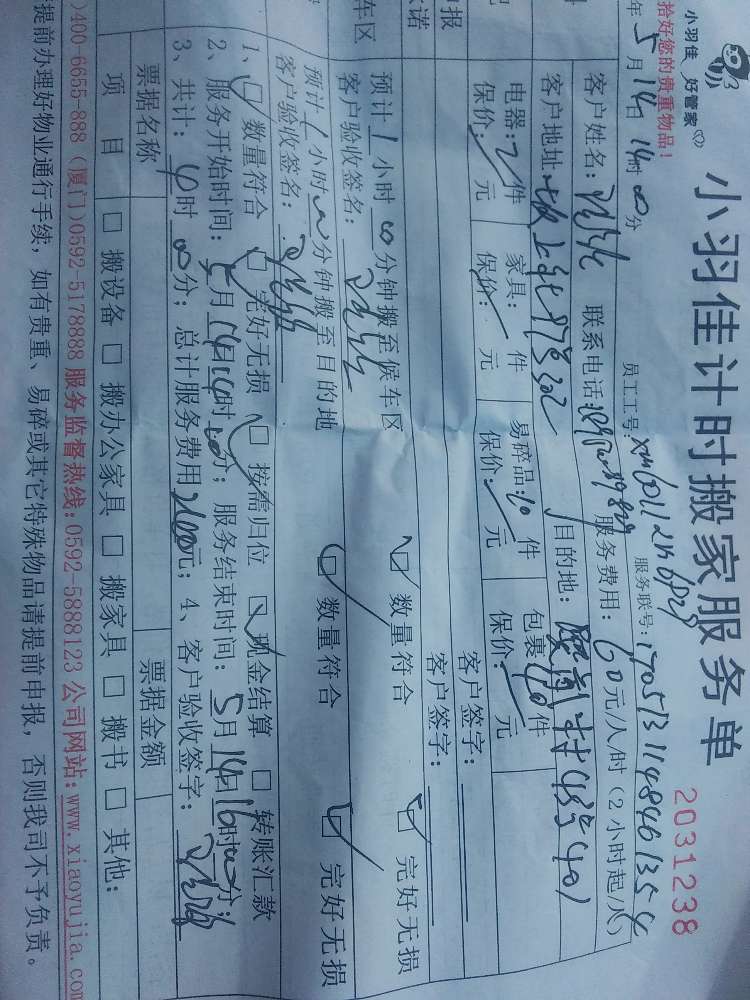 小羽佳 好管家
小羽佳计时搬家服务单
2031238
拾好您的贵重物品!
员工工号:
服务联号:
年5月14日14时00分
客户姓名:
联系电话:
服务费用:60元/人/时(2小时起/人)
客户地址:
目的地:
电器:2件
家具: 件
易碎品:10件
包裹:件
保价: 元
保价: 元
保价: 元
保价: 元
客户签字:
客户签字:
报
诺
车区
预计1小时00分钟搬至候车区
数量符合
完好无损
客户验收签名:
预计1小时分钟搬至目的地
数量符合
完好无损
客户验收签名:
1、数量符合 完好无损 按需归位 现金结算 转账汇款
2、服务开始时间:5月14日14时00分;服务结束时间:5月14日16时00分;
3、共计:时00分;总计服务费用元;4、客户验收签字:
票据名称
票据金额
项 目
搬设备 搬办公家具 搬家具 搬书 其他:
)400-6655-888 (厦门)0592-5178888 服务监督热线:0592-5888123 公司网站:www.xiaoyujia.com
提前办理好物业通行手续,如有贵重、易碎或其它特殊物品请提前申报,否则我司不予负责。